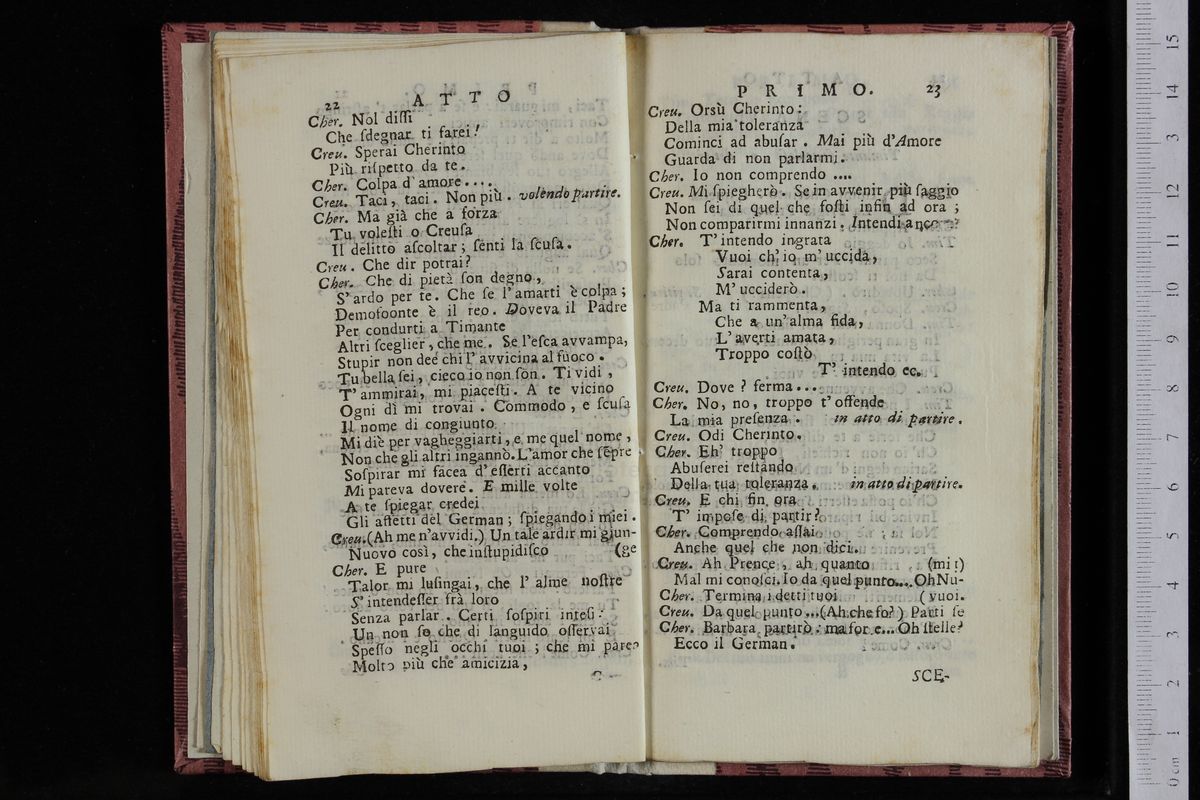 22 ATTO
Cher. Nol diſſi
Che ſdegnar ti farei!
Creu. Sperai Cherinto
Più riſpetto da te.
Cher. Colpa d'amore....
Creu. Taci, taci. Non più. volendo partire.
Cher. Ma già che a forza
Tu voleſti o Creuſa
Il delitto aſcoltar; ſenti la ſcuſa.
Creu. Che dir potrai?
Cher. Che di pietà ſon degno,
S'ardo per te. Che ſe l'amarti è colpa;
Demofoonte è il reo. Doveva il Padre
Per condurti a Timante
Altri ſceglier, che me. Se l'eſca avvampa,
Stupir non dee chi l'avvicina al fuoco.
Tu bella ſei, cieco io non ſon. Ti vidi,
T'ammirai, mi piaceſti. A te vicino
Ogni dì mi trovai. Commodo, e ſcuſa
Il nome di congiunto
Mi diè per vagheggiarti, e me quel nome,
Non che gli altri ingannò. L'amor che ſẽpre
Soſpirar mi facea d'eſſerti accanto
Mi pareva dovere. E mille volte
A te ſpiegar credei
Gli affetti del German; ſpiegando i miei.
Creu.(Ah me n'avvidi.) Un tale ardir mi giun-
Nuovo così, che inſtupidiſco (ge
Cher. E pure
Talor mi luſingai, che l'alme noſtre
S'intendeſſer frà loro
Senza parlar. Certi ſoſpiri inteſi:
Un non ſo che di languido oſſervai
Speſſo negli occhi tuoi; che mi parea
Molto più che amicizia,
PRIMO. 23
Creu. Orsù Cherinto:
Della mia toleranza
Cominci ad abuſar. Mai più d'Amore
Guarda di non parlarmi.
Cher. Io non comprendo ....
Creu. Mi ſpiegherò. Se in avvenir più ſaggio
Non ſei di quel che foſti infin ad ora;
Non comparirmi innanzi. Intendi ancora?
Cher. T'intendo ingrata
Vuoi ch'io m'uccida,
Sarai contenta,
M'ucciderò.
Ma ti rammenta,
Che a un'alma fida,
L'averti amata,
Troppo coſtò
T'intendo ec.
Creu. Dove? ferma...
Cher. No, no, troppo t'offende
La mia preſenza. in atto di partire.
Creu. Odi Cherinto.
Cher. Eh' troppo
Abuſerei reſtando
Della tua toleranza. in atto di partire.
Creu. E chi fin ora
T'impoſe di partir?
Cher. Comprendo aſſai
Anche quel che non dici.
Creu. Ah Prence, ah quanto (mi!)
Mal mi conoſci. Io da quel punto.... Oh Nu-
Cher. Termina i detti tuoi (vuoi.
Creu. Da quel punto ...(Ah che fo?) Parti ſe
Cher. Barbara partirò: ma for e... Oh ſtelle?
Ecco il German.
SCE-